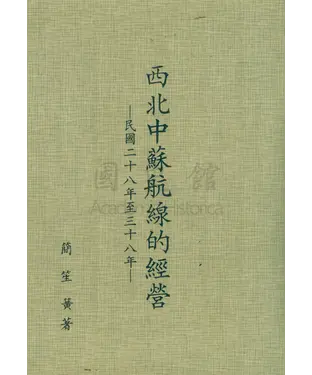 西北中蘇航線的經營
—民國二十八年至三十八年—
簡笙簧著
國 館
Academia Historica